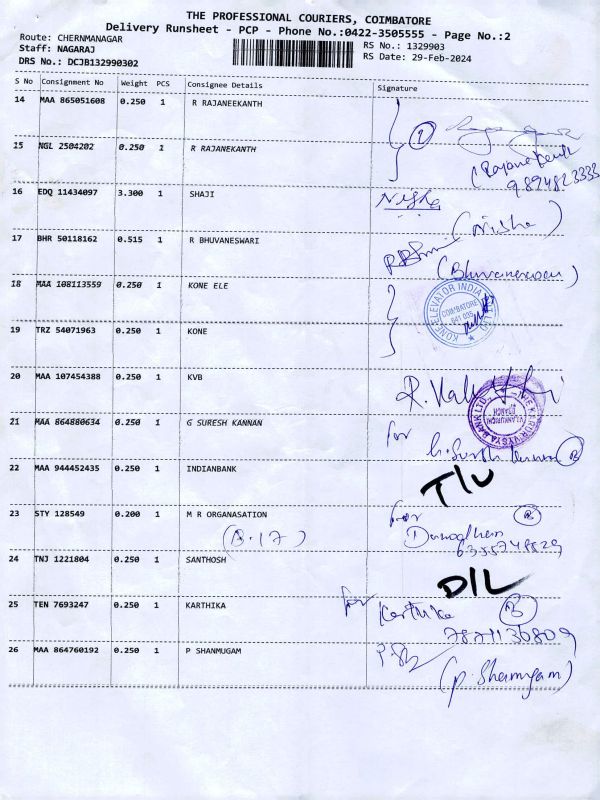 THE PROFESSIONAL COURIERS, COIMBATORE
Delivery Runsheet - PCP - Phone No.:0422-3505555 - Page No.:2
Route: CHERNMANAGAR
RS No.: 1329903
Staff: NAGARAJ
RS Date: 29-Feb-2024
DRS No.: DCJB132990302
S No Consignment No Weight PCS Consignee Details Signature
14 MAA 865051608 0.250 1 R RAJANEEKANTH
15 NGL 2504202 0.250 1 R RAJANEKANTH
(Rajanekanth
9894823333
16 EDQ 11434097 3.300 1 SHAJI Nisha
(Nisha)
17 BHR 50118162 0.515 1 R BHUVANESWARI
(Bhuvaneswari)
18 MAA 108113559 0.250 1 KONE ELE
KONE ELEVATOR INDIA PVT LTD
COIMBATORE
641 035
19 TRZ 54071963 0.250 1 KONE
20 MAA 107454388 0.250 1 KVB
THE KARUR VYSYA BANK LTD.
BRANCH
21 MAA 864880634 0.250 1 G SURESH KANNAN for
G. Suresh Kannan
22 MAA 944452435 0.250 1 INDIANBANK
23 STY 128549 0.200 1 M R ORGANASATION for
(B.17)
6355748529
24 TNJ 1221804 0.250 1 SANTHOSH
D/L
25 TEN 7693247 0.250 1 KARTHIKA for Karthika B
7871130809
26 MAA 864760192 0.250 1 P SHANMUGAM
(P. Shamugam)